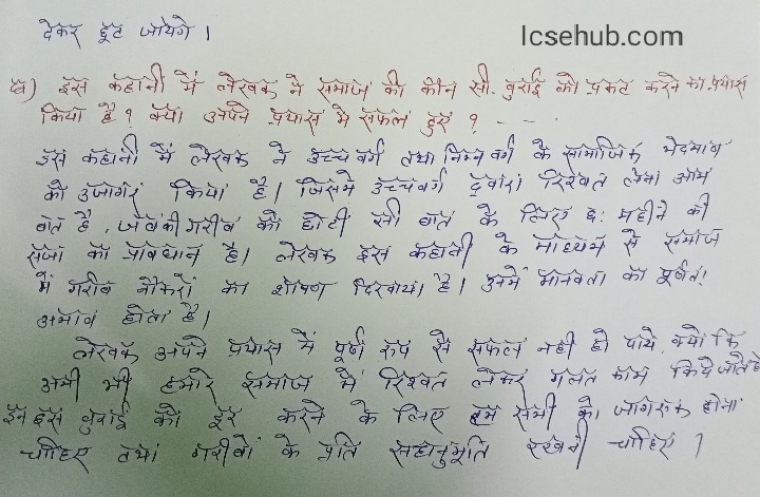 देकर छूट जायेंगे ।
Icsehub.com
ख) इस कहानी में लेखक ने समाज की कौन सी बुराई को प्रकट करने का प्रयास
किया है ? क्या अपने प्रयास में सफल हुए ? - - .
इस कहानी में लेखक ने उच्च वर्ग तथा निम्न वर्ग के सामाजिक भेदभाव
को उजागर किया है। जिसमें उच्चवर्ग द्वारा रिश्वत लेना आम
बात है, जबकी गरीब को छोटी सी बात के लिए छः महीने की
सजा का प्रावधान है। लेखक इस कहानी के माध्यम से समाज
में गरीब नौकरों का शोषण दिखाया है। उनमें मानवता का पूर्णतः
अभाव होता है।
लेखक अपने प्रयास में पूर्ण रूप से सफल नही हो पाये, क्यो कि
अभी भी हमारे समाज में रिश्वत लेकर गलत काम किये जाते है
इस बुराई को दूर करने के लिए हम सभी को जागरूक होना
चाहिए तथा गरीबों के प्रति सहानुभूति रखनी चाहिए ।